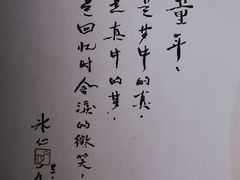 童年，
是梦中的真，
是真中的梦，
是回忆时含泪的微笑，